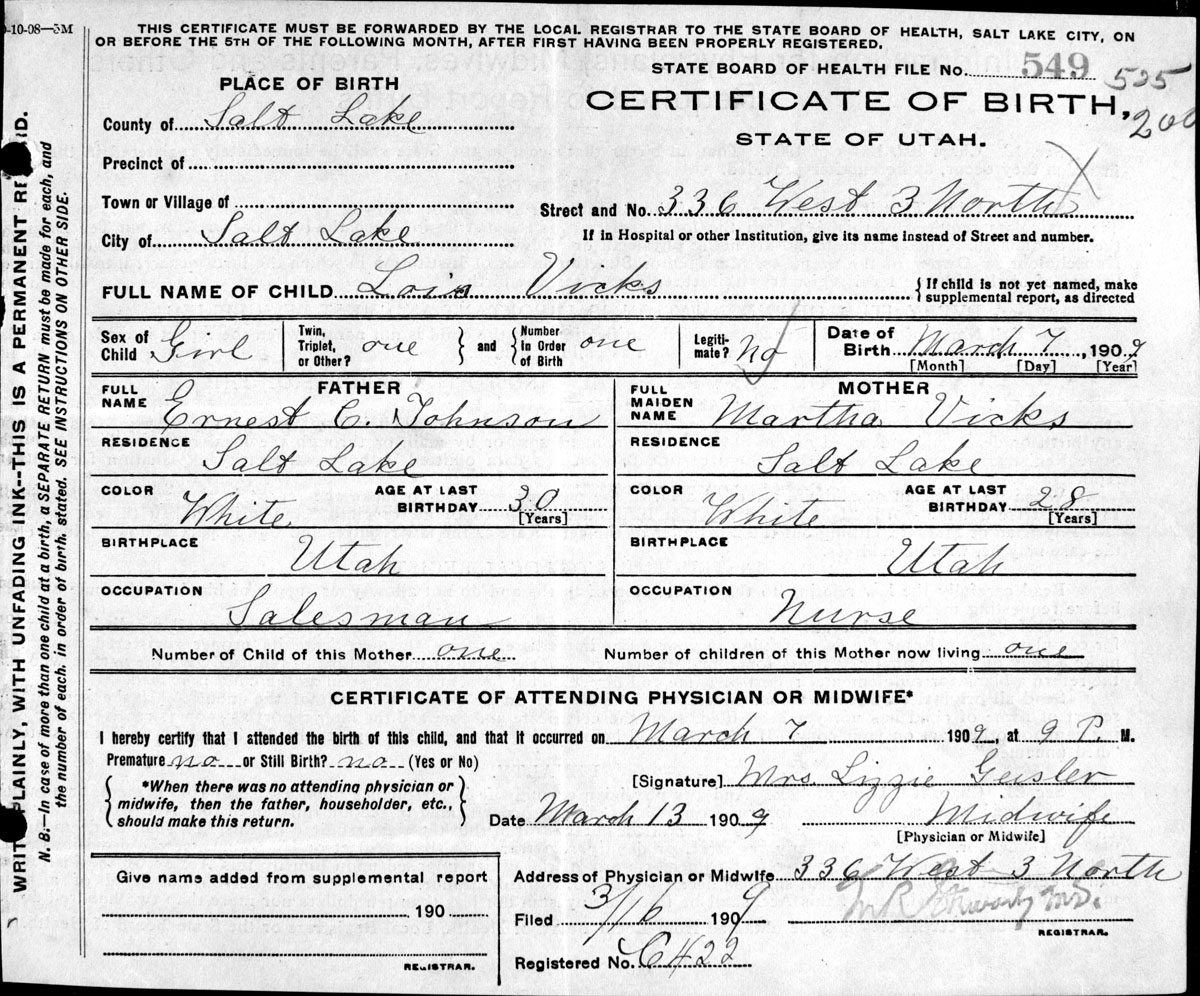 -10-08—5M
THIS CERTIFICATE MUST BE FORWARDED BY THE LOCAL REGISTRAR TO THE STATE BOARD OF HEALTH, SALT LAKE CITY, ON
OR BEFORE THE 5TH OF THE FOLLOWING MONTH, AFTER FIRST HAVING BEEN PROPERLY REGISTERED.
STATE BOARD OF HEALTH FILE No. 549 525
200
CERTIFICATE OF BIRTH,
STATE OF UTAH.
PLACE OF BIRTH
County of Salt Lake
Precinct of
Town or Village of
City of Salt Lake
Street and No. 336 West 3 North
If in Hospital or other Institution, give its name instead of Street and number.
FULL NAME OF CHILD Lois Vicks
{ If child is not yet named, make
supplemental report, as directed
Sex of Child Girl
Twin, Triplet, or Other? one } and { Number In Order of Birth one
Legiti-mate? No
Date of Birth March 7, 1909
[Month] [Day] [Year]
FATHER
FULL NAME Ernest C. Johnson
RESIDENCE Salt Lake
COLOR White AGE AT LAST BIRTHDAY 30 [Years]
BIRTHPLACE Utah
OCCUPATION Salesman
MOTHER
FULL MAIDEN NAME Martha Vicks
RESIDENCE Salt Lake
COLOR White AGE AT LAST BIRTHDAY 28 [Years]
BIRTHPLACE Utah
OCCUPATION Nurse
Number of Child of this Mother one Number of children of this Mother now living one
CERTIFICATE OF ATTENDING PHYSICIAN OR MIDWIFE*
I hereby certify that I attended the birth of this child, and that it occurred on March 7 1909, at 9 P M.
Premature no or Still Birth? no (Yes or No)
{ *When there was no attending physician or
midwife, then the father, householder, etc.,
should make this return. }
[Signature] Mrs Lizzie Geisler
Date March 13 1909 Midwife
[Physician or Midwife]
Give name added from supplemental report
190
REGISTRAR.
Address of Physician or Midwife 336 West 3 North
Filed 3/16 1909 M.D.
REGISTRAR.
Registered No. C422
WRITE PLAINLY, WITH UNFADING INK--THIS IS A PERMANENT RE RD.
N. B.—In case of more than one child at a birth, a SEPARATE RETURN must be made for each, and
the number of each, in order of birth, stated. SEE INSTRUCTIONS ON OTHER SIDE.